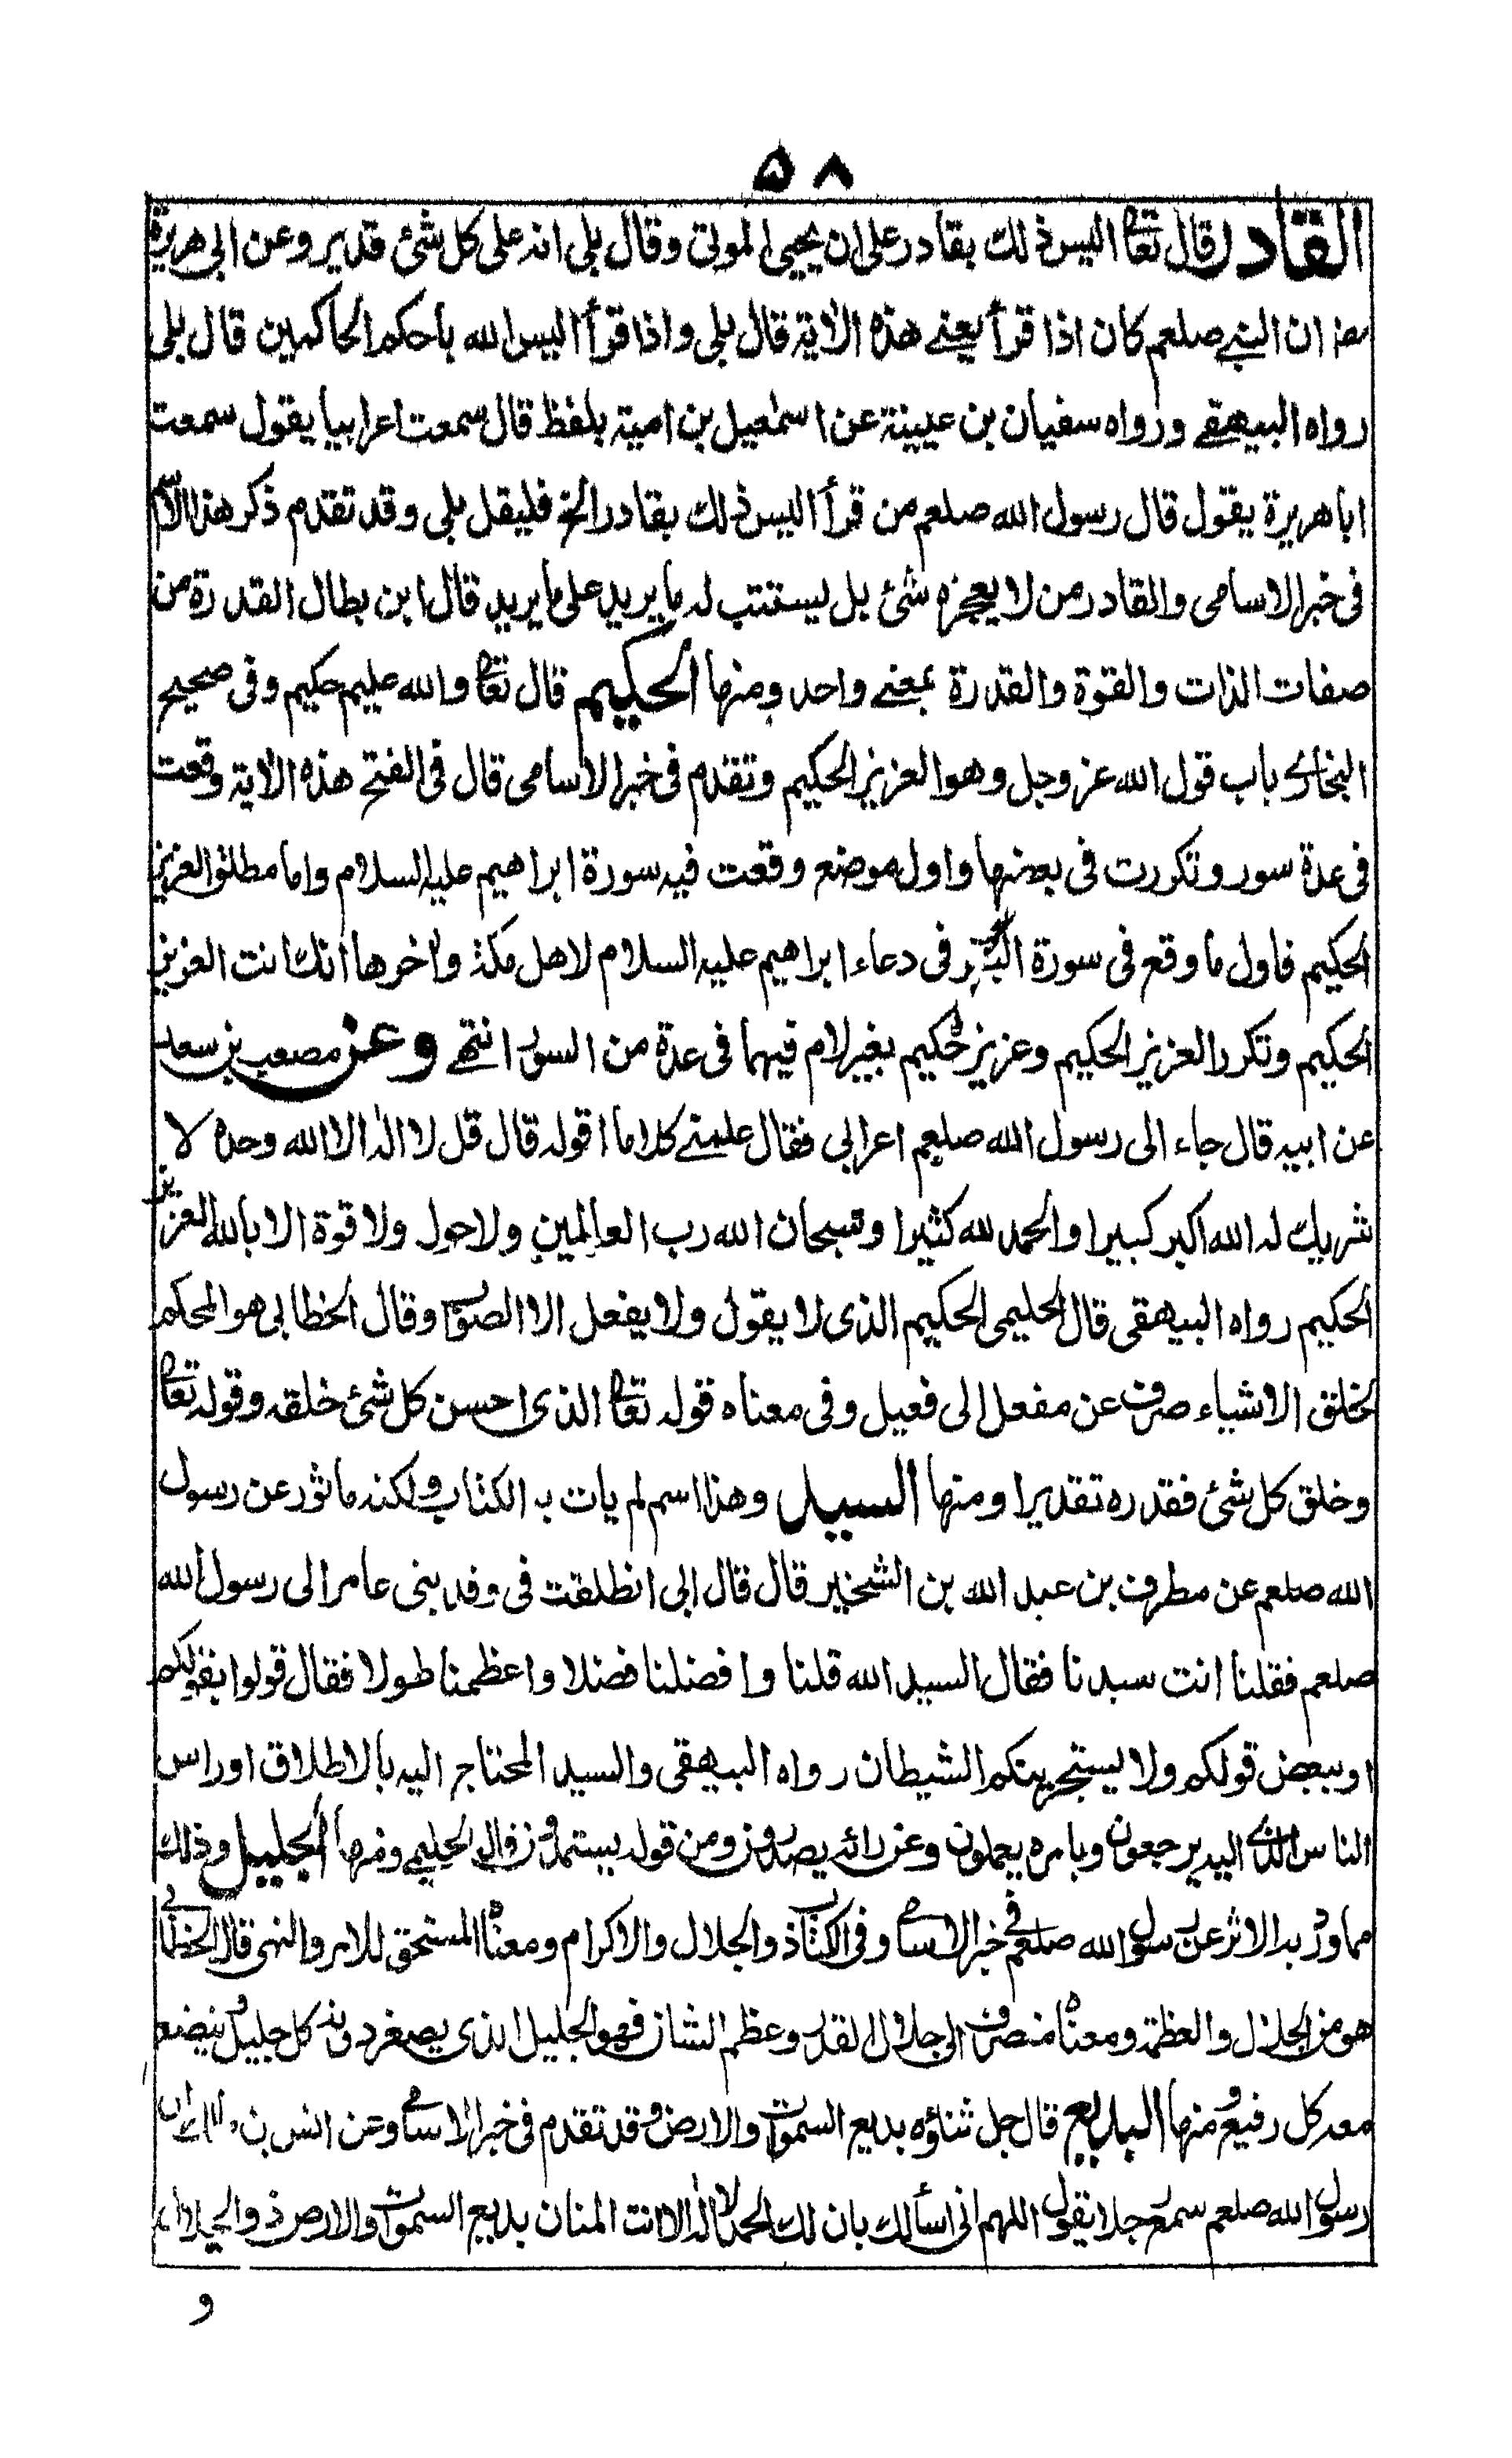 ۵۸
القادر قال تعا اليس ذلك بقادر على ان يحيى الموتى وقال بلى انه على كل شئ قدير وعن ابى هريرة
ان النبے صلعم كان اذا قرأ يعنے هذه الآية قال بلى واذا قرأ اليس الله باحكم الحاكمين قال بلى
رواه البيهقے ورواه سفيان بن عيينة عن اسمٰعيل بن امية بلفظ قال سمعت اعرابيا يقول سمعت
اباهريرة يقول قال رسول الله صلعم من قرأ اليس ذلك بقادر الخ فليقل بلى وقد تقدم ذكر هذا الاسم
فى خبر الاسامى والقادر من لا يعجزه شئ بل يستتب له ما يريد على ما يريد قال ابن بطال القدرة من
صفات الذات والقوة والقدرة بمعنے واحد ومنها الحكيم قال تعا والله عليم حكيم وفى صحيح
البخارے باب قول الله عز وجل وهو العزيز الحكيم وتقدم فى خبر الاسامى قال فى الفتح هذه الآية وقعت
فى عدة سور وتكررت فى بعضها واول موضع وقعت فيه سورة ابراهيم عليه السلام واما مطلق العزيز
الحكيم فاول ما وقع فى سورة البقرة فى دعاء ابراهيم عليه السلام لاهل مكة وآخرها انك انت العزيز
الحكيم وتكرر العزيز الحكيم وعزيز حكيم بغير لام فيهما فى عدة من السور انتهے وعن مصعب بن سعد
عن ابيه قال جاء الى رسول الله صلعم اعرابى فقال علمنے كلاما اقوله قال قل لا اله الا الله وحده لا
شريك له الله اكبر كبيرا والحمد لله كثيرا وسبحان الله رب العالمين ولا حول ولا قوة الا بالله العزيز
الحكيم رواه البيهقى قال الحليمى الحكيم الذى لا يقول ولا يفعل الا الصواب وقال الخطابى هو المحكم
لخلق الاشياء صرف عن مفعل الى فعيل وفى معناه قوله تعا الذى احسن كل شئ خلقه وقوله تعا
وخلق كل شئ فقدره تقديرا ومنها السيد وهذا اسم لم يات به الكتاب ولكنه ماثور عن رسول
الله صلعم عن مطرف بن عبد الله بن الشخير قال قال ابى انطلقت فى وفد بنى عامر الى رسول الله
صلعم فقلنا انت سيدنا فقال السيد الله قلنا وافضلنا فضلا واعظمنا طولا فقال قولوا بقولكم
اوببعض قولكم ولا يستجرينكم الشيطان رواه البيهقى والسيد المحتاج اليه بالاطلاق اوراس
الناس الذى اليه يرجعون وبامره يعملون وعن رائه يصدرون ومن قوله يستمدون قال الحليمے ومنها الجليل وذلك
مما ورد به الاثر عن رسول الله صلعم فى خبر الاسامى وفى الكتاب ذو الجلال والاكرام ومعناه المستحق للامر والنهى قال الخطابى
هو من الجلال والعظمة ومعناه منصرف الى جلال القدر وعظم الشان فهو الجليل الذى يصغر دونه كل جليل ويتضع
معه كل رفيع ومنها البديع قال جل ثناؤه بديع السموات والارض وقد تقدم فى خبر الاسامى وعن انس بن مالك ان
رسول الله صلعم سمع رجلا يقول اللهم انى اسألك بان لك الحمد لا اله الا انت المنان بديع السموات والارض ذو الجلال
و